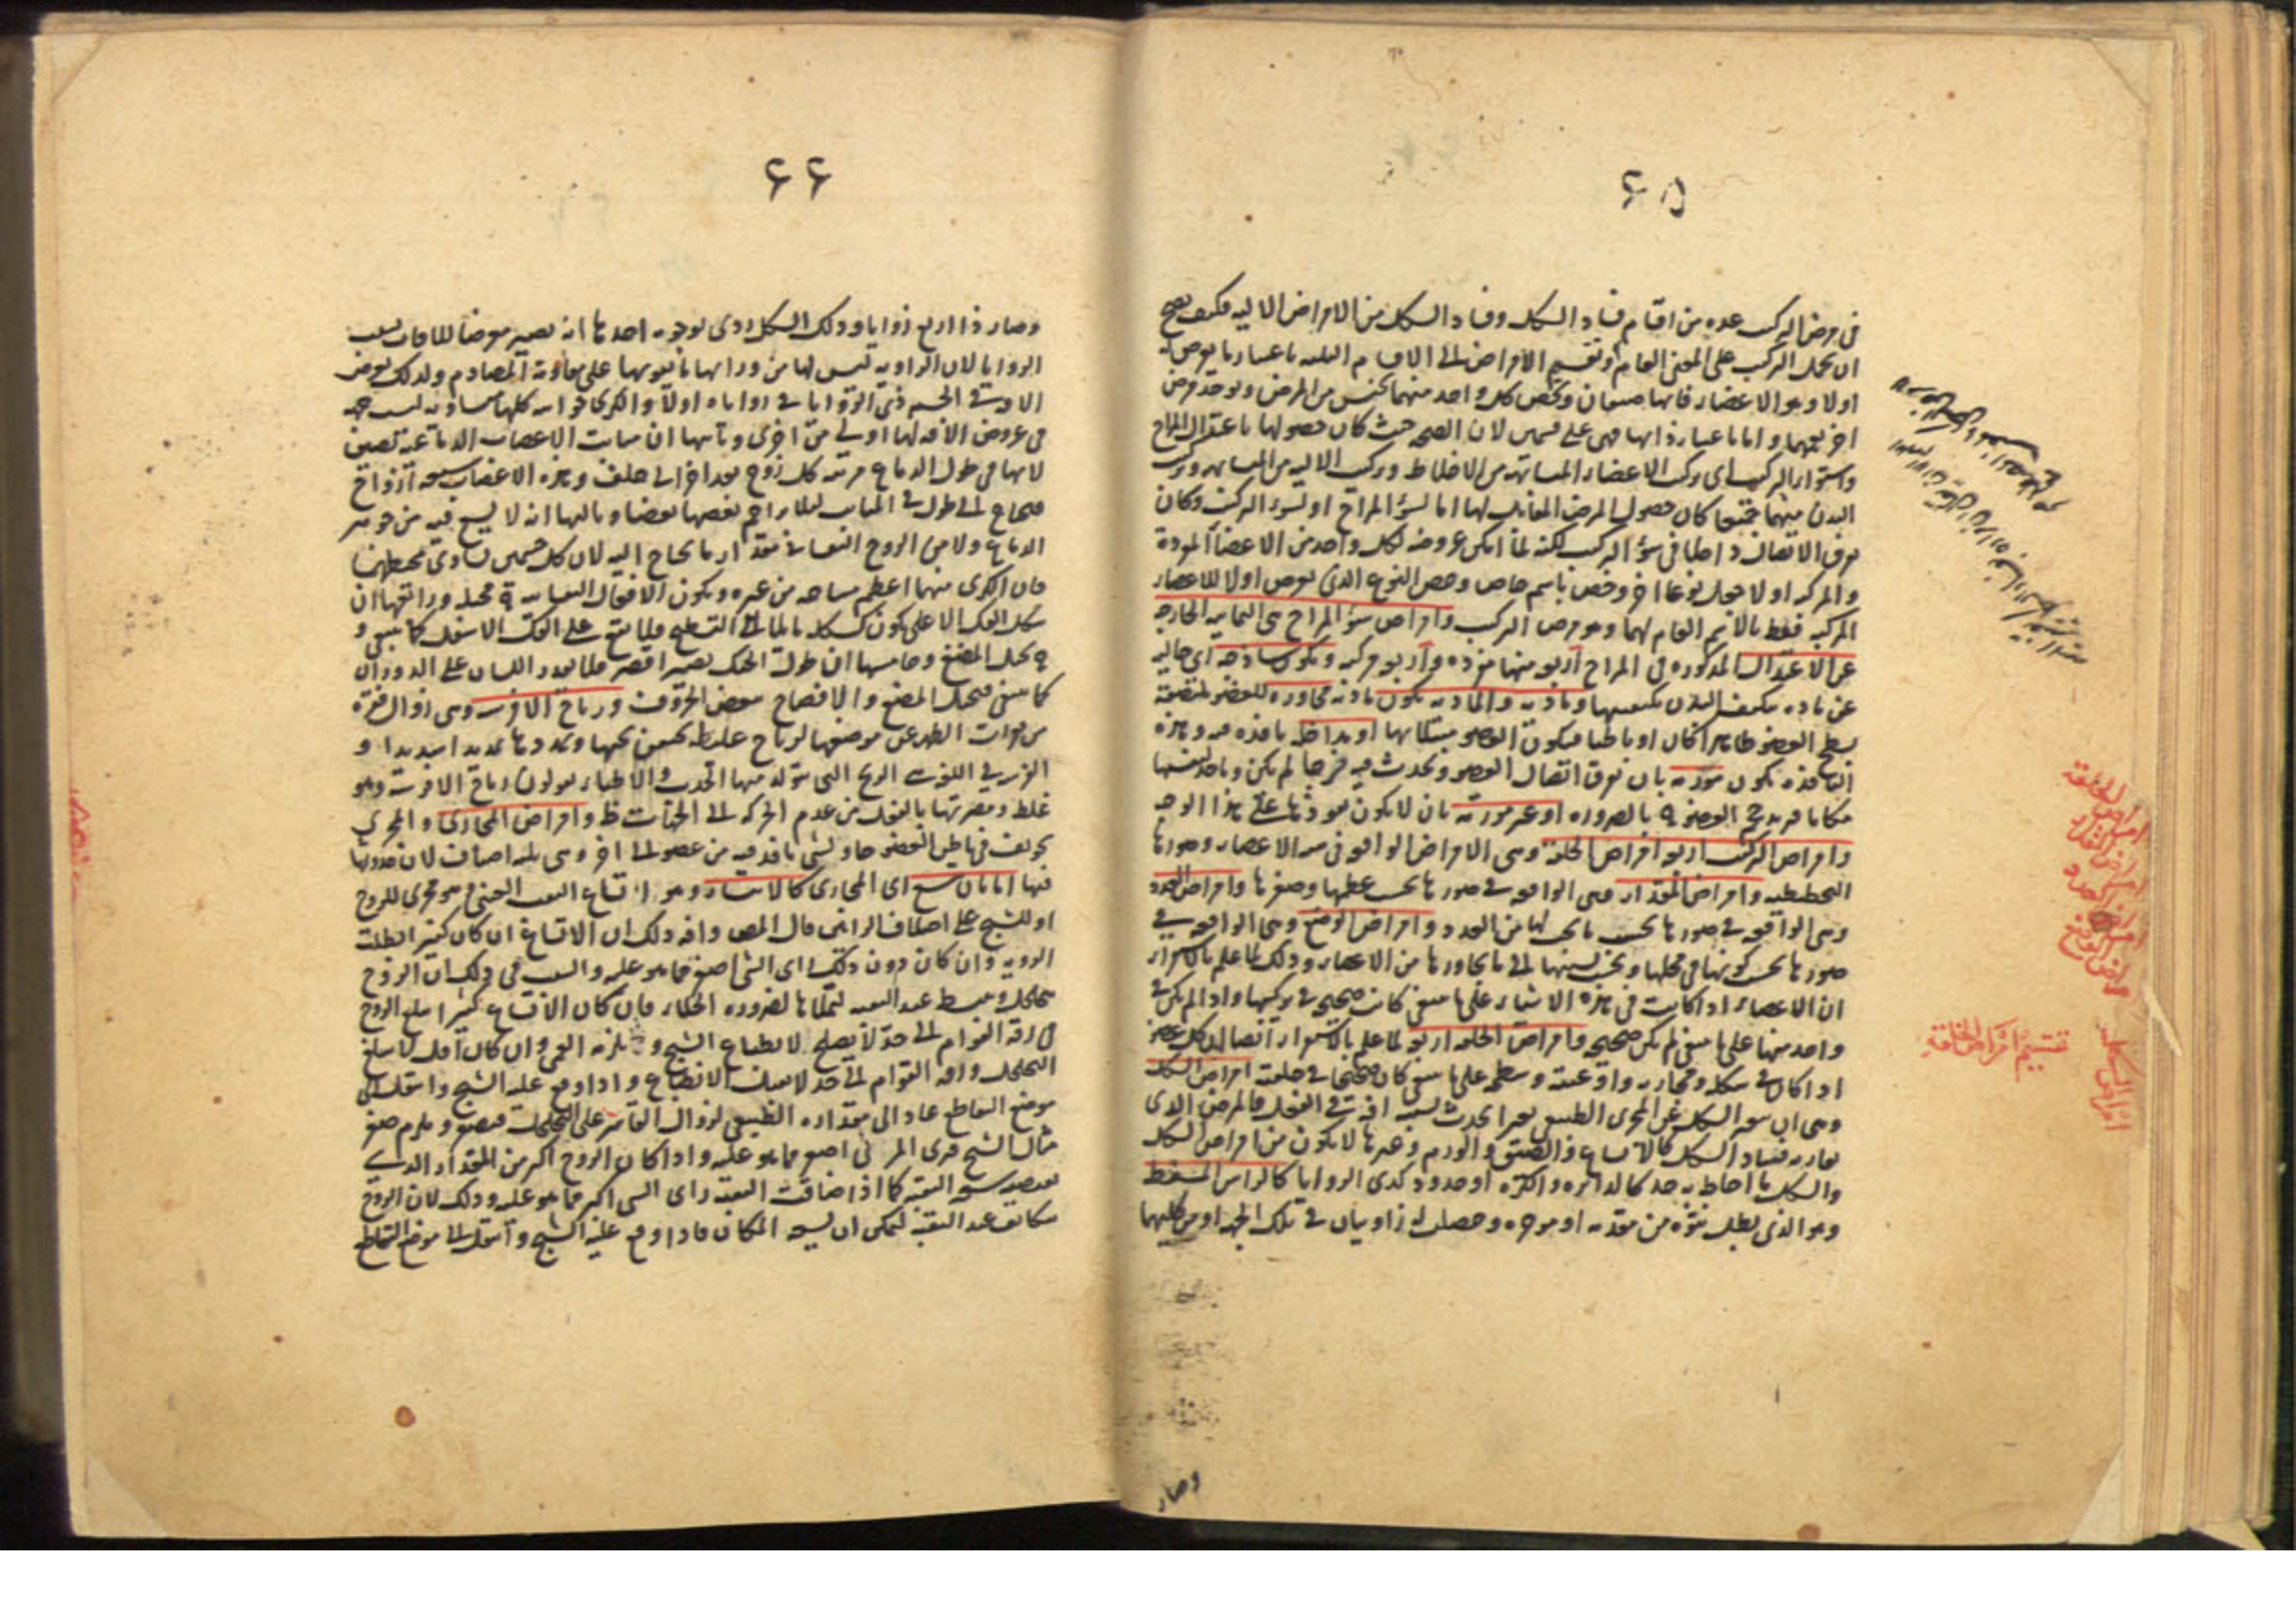 ٦٥
فى مرض التركيب عده من اقسام فساد الشكل وفساد الشكل من الامراض الاليه فكيف يصح
ان يحمل التركيب على المعنى العام او تقسيم الامراض الى الاقسام الثلثه باعتبار ما يعرض له
اولا وهو الاعضاء فانها صنفان ويختص كل واحد منهما بجنس من المرض ويوجد مرض
اخر يعمهما واما باعتبار ذاتها فهى على قسمين لان الصحه حيث كان حصولها باعتدال المزاج
واستواء التركيب اى تركيب الاعضاء المتشابهه من الاخلاط وتركيب الاليه من المتشابهه وتركيب
البدن منهما جميعا كان حصول المرض المقابل لها اما لسؤ المزاج او لسؤ التركيب وكان
تفرق الاتصال داخلا فى سؤ التركيب لكنه لما امكن عروضه لكل واحد من الاعضا المفردة
والمركبه اولا جعل نوعا اخر وخص باسم خاص وخص النوع الذى يعرض اولا للاعضاء
المركبه فقط بالاسم العام لهما وهو مرض التركيب وامراض سؤ المزاج هى الثمانيه الخارجه
عن الاعتدال المذكوره فى المزاج اربع منها مفرده واربع مركبه ويكون ساذجه اى خاليه
عن ماده يتكيف البدن بكيفيتها وماديه والماديه يكون مادته مجاوره للعضو ملتصقة
بسطح العضو ظاهرا كان او باطنا فيكون العضو مبتلا بها او مداخله نافذه فيه وهذه
النافذه يكون مورمه بان تفرق اتصال العضو وتحدث فيه فرجا لم يكن وياخذ لنفسها
مكانا فيزيد حجم العضو به بالضروره او غير مورمه بان لا يكون نفوذها على هذا الوجه
وامراض التركيب اربع امراض الخلقة وهى الامراض الواقعه فى هيه الاعضاء وصورتها
التخطيطيه وامراض المقدار وهى الواقعه فى صورتها بحسب عظمها وصغرها وامراض العدد
وهى الواقعه فى صورتها بحسب ما يجب لها من العدد وامراض الوضع وهى الواقعه فى
صورتها بحسب كونها فى محلها وبحسب نسبتها الى ما يجاورها من الاعضاء وذلك لما علم بالاستقراء
ان الاعضاء اذا كانت فى هذه الاشياء على ما ينبغى كانت صحيحه فى تركيبها واذا لم يكن فى
واحد منها على ما ينبغى لم يكن صحيحه وامراض الخلقه اربع لما علم بالاستقراء ايضا ان كل عضو
اذا كان فى شكله ومجاريه واوعيته وسطحه على ما ينبغى كان صحيحا فى خلقته امراض الشكل
وهى ان يتغير الشكل عن المجرى الطبيعى تغيرا يحدث بسببه افة فى الفعل فالمرض الذى
يقارنه فساد الشكل كالاتساع والضيق والورم وغيرها لا يكون من امراض الشكل
والشكل ما احاط به حد كالدائره والكره او حدود كذى الزوايا كالراس المسفط
وهو الذى بطل نتؤه من مقدمه او مؤخره وحصلت له زاويتان فى تلك الجهه او من كليهما
وصار
امراض الخلقة
امراض المقدار
امراض العدد
امراض الوضع
تقسيم امراض الخلقة
امراض الشكل
٦٦
وصار ذا اربع زوايا وذلك الشكل ردى لوجوه احدها انه يصير معرضا للافات بسبب
الزوايا لان الزاويه ليس لها من ورائها ما يقويها على مقاومة المصادم ولذلك يعرض
الاذيه فى الجسم ذى الزوايا فى زواياه اولا والكرى جوانبه كلها متساويه ليس جهه
فى عروض الافه لها اولى من اخرى وثانيها ان منابت الاعصاب الدماغيه تضيق
لانها فى طول الدماغ مرتبه كل زوج بعد اخر الى خلف وهذه الاعصاب سبعه ازواج
فتحتاج الى طول فى المنابت لئلا يزاحم بعضها بعضا وثالثها انه لا يسع فيه من جوهر
الدماغ ولا من الروح النفسانى مقدار ما يحتاج اليه لان كل جسمين تساوى محيطهما
فان الكرى منهما اعظم مساحه من غيره ويكون الافعال النفسانيه به مختله ورابعها ان
شكل الفك الاعلى يكون كشكله مائلا الى التسطيح فلا يقع على الفك الاسفل كما ينبغى و
به يختل المضغ وخامسها ان طول الحنك يصير اقصر فلا يقدر اللسان على الدوران
كما ينبغى فيختل المضغ والافصاح ببعض الحروف ورياح الافرسه وهى زوال فقره
من فقرات الظهر عن موضعها لرياح غليظه تحتقن تحتها وتمددها تمديدا شديدا و
الفرسه فى اللغه الريح التى يتولد منها الحدب والاطباء يقولون رياح الافرسه وهو
غلط ومضرتها بالفعل من عدم الحركه الى الجنبات ظ وامراض المجارى والمجرى
تجويف فى باطن العضو حاو لشى نافذ فيه من عضو الى اخر وهى ثلثه اصناف لان حدوثها
فيها اما بان يتسع اى المجارى كالانتشار وهو اتساع الثقب العنبى هو مجرى للروح
او للشبح على اختلاف الرائين قال المص وافه ذلك ان الاتساع ان كان كثيرا بطلت
الرويه وان كان دون ذلك راى الشى اصغر مما هو عليه والسبب فى ذلك ان الروح
يتخلخل وينبسط عند الثقبه ليملأها لضروره الخلاء فان كان الاتساع كثيرا بلغ الروح
فى رقة القوام الى حد لا يصلح لانطباع الشبح و يلزمه العمى وان كان اقل لا يبلغ
التخلخل ورقه القوام الى حد لا يقبل الانطباع واذا وقع عليه الشبح وانتقل الى
موضع التقاطع عاد الى مقداره الطبيعى لزوال القاسر على التخلخل فيصغر ويلزم صغر
مثال الشبح فيرى المرئى اصغر مما هو عليه واذا كان الروح اكثر من المقدار الذى
يقتضيه سعه الثقبه كما اذا ضاقت الثقبه راى الشى اكبر مما هو عليه وذلك لان الروح
يتكاثف عند الثقبه ليمكن ان يسعه المكان فاذا وقع عليه الشبح وانتقل الى موضع التقاطع